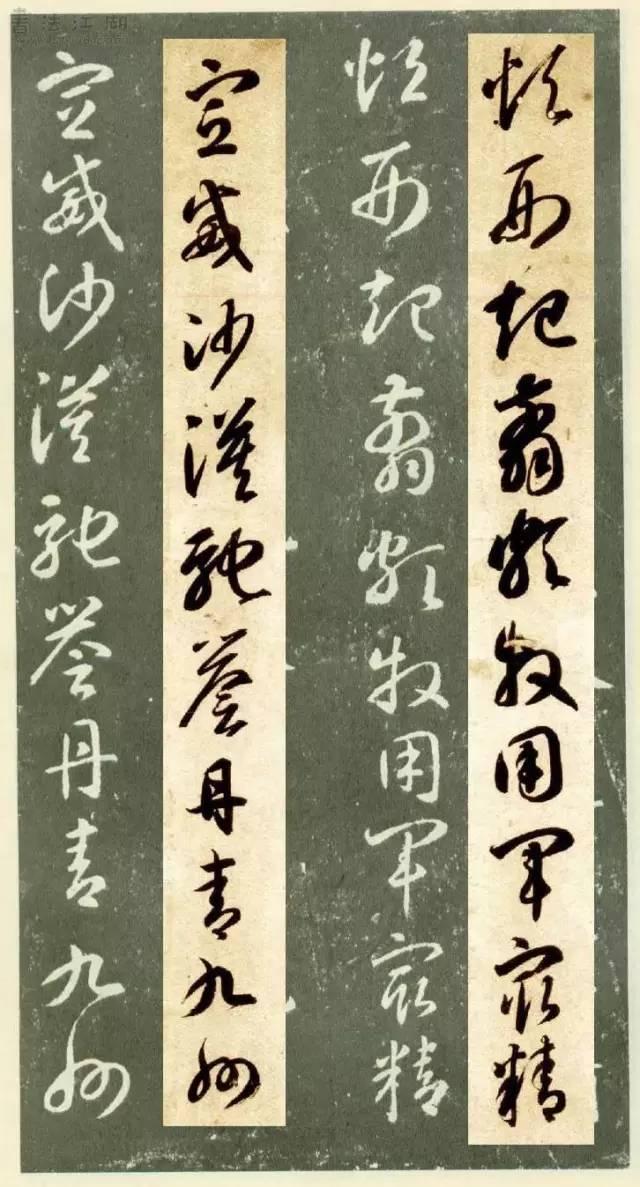 煩刑起翦頗牧用軍最精
煩刑起翦頗牧用軍最精
宣威沙漠馳譽丹青九州
宣威沙漠馳譽丹青九州
書法江湖